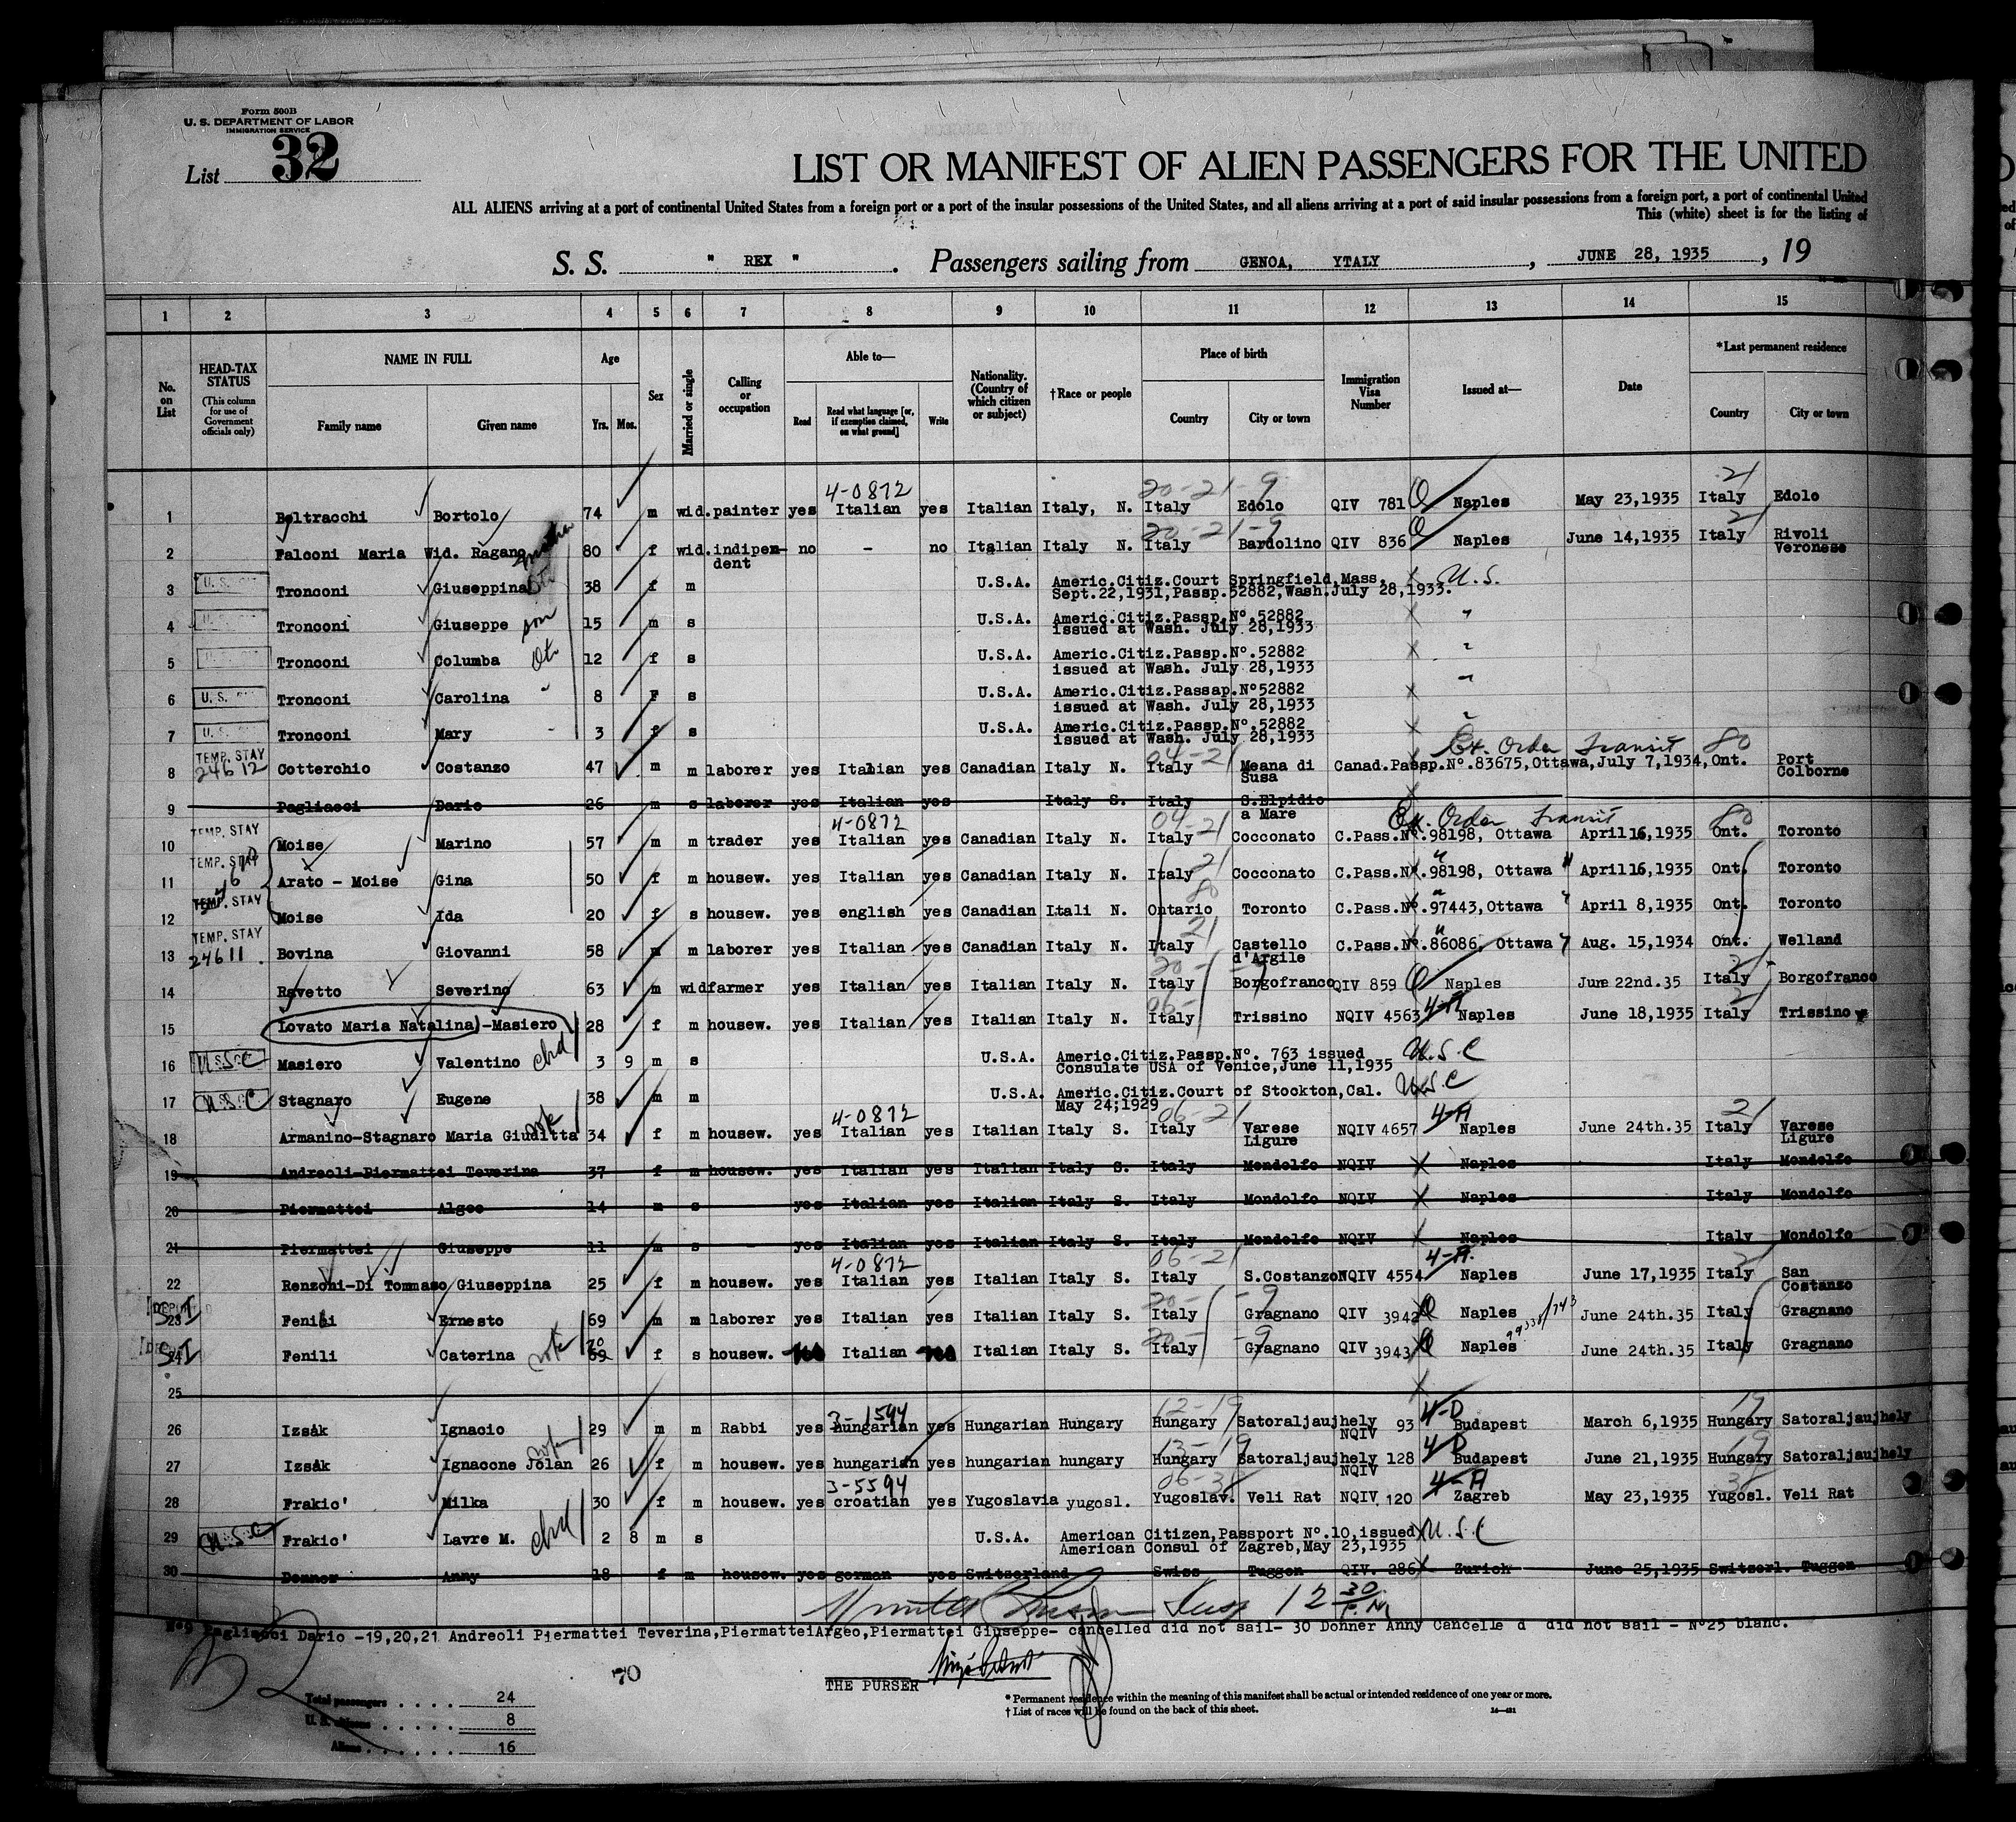 Form 500B
U. S. DEPARTMENT OF LABOR
IMMIGRATION SERVICE
List 32
LIST OR MANIFEST OF ALIEN PASSENGERS FOR THE UNITED
ALL ALIENS arriving at a port of continental United States from a foreign port or a port of the insular possessions of the United States, and all aliens arriving at a port of said insular possessions from a foreign port, a port of continental United
This (white) sheet is for the listing of
S. S. " REX " . Passengers sailing from GENOA, YTALY , JUNE 28, 1935 , 19
1 2 3 4 5 6 7 8 9 10 11 12 13 14 15
No. on List
HEAD-TAX STATUS (This column for use of Government officials only)
NAME IN FULL Family name Given name
Age Yrs. Mos.
Sex
Married or single
Calling or occupation
Able to— Read Read what language [or, if exemption claimed, on what ground] Write
Nationality. (Country of which citizen or subject)
†Race or people
Place of birth Country City or town
Immigration Visa Number
Issued at—
Date
*Last permanent residence Country City or town
4-0872 20-21-9 21
1 Beltracchi Bortolo 74 m wid. painter yes Italian yes Italian Italy, N. Italy Edolo QIV 781 Naples May 23,1935 Italy Edolo
20-21-9 21
2 Falconi Maria Wid. Ragano 80 f wid. indipen-dent no - no Italian Italy N. Italy Bardolino QIV 836 Naples June 14,1935 Italy Rivoli Veronese
3 Tronconi Giuseppina 38 f m U.S.A. Americ.Citiz.Court Springfield,Mass, U.S.
Sept.22,1931,Passp.52882,Wash.July 28,1933.
4 Tronconi Giuseppe son 15 m s U.S.A. Americ.Citiz.Passp.Nº.52882 "
issued at Wash. July 28,1933
5 Tronconi Columba 12 f s U.S.A. Americ.Citiz.Passp.Nº.52882 "
issued at Wash. July 28,1933
6 U.S. Tronconi Carolina " 8 F s U.S.A. Americ.Citiz.Passap.Nº52882 "
issued at Wash. July 28,1933
7 U.S. Tronconi Mary 3 f s U.S.A. Americ.Citiz.Passp.Nº.52882
issued at Wash. July 28,1933
TEMP. STAY 04-21 Ex. Order Transit 80
24612
8 Cotterchio Costanzo 47 m m laborer yes Italian yes Canadian Italy N. Italy Meana di Susa Canad.Passp.Nº.83675,Ottawa,July 7,1934, Ont. Port Colborne
9 Pagliacci Dario 26 m s laborer yes Italian yes Italy S. Italy S.Elpidio a Mare
TEMP. STAY 4-0872 04-21 Ex. Order Transit 80
10 Moise Marino 57 m m trader yes Italian yes Canadian Italy N. Italy Cocconato C.Pass.Nº.98198, Ottawa April 16,1935 Ont. Toronto
TEMP. STAY 21
11 Arato - Moise Gina 50 f m housew. yes Italian yes Canadian Italy N. Italy Cocconato C.Pass.Nº.98198, Ottawa April 16,1935 Ont. Toronto
TEMP. STAY 80
12 Moise Ida 20 f s housew. yes english yes Canadian Itali N. Ontario Toronto C.Pass.Nº.97443,Ottawa April 8,1935 Ont. Toronto
TEMP. STAY 21
24611
13 Bovina Giovanni 58 m m laborer yes Italian yes Canadian Italy N. Italy Castello d'Argile C.Pass.Nº.86086, Ottawa Aug. 15,1934 Ont. Welland
14 Ravetto Severino 63 m wid farmer yes Italian yes Italian Italy N. Italy Borgofranco QIV 859 Naples June 22nd.35 Italy Borgofranco
4-A
15 Lovato Maria Natalina)-Masiero 28 f m housew. yes Italian yes Italian Italy N. Italy Trissino NQIV 4563 Naples June 18,1935 Italy Trissino
16 U.S.C Masiero Valentino chd 3 9 m s U.S.A. Americ.Citiz.Passp.Nº. 763 issued U.S.C
Consulate USA of Venice,June 11,1935
17 U.S.C Stagnaro Eugene 38 m m U.S.A. Americ.Citiz.Court of Stockton,Cal. U.S.C
May 24;1929
4-0872 06-21 4-A 21
18 Armanino-Stagnaro Maria Giuditta 34 f m housew. yes Italian yes Italian Italy S. Italy Varese Ligure NQIV 4657 Naples June 24th.35 Italy Varese Ligure
19 Andreoli-Piermattei Teverina 37 f m housew. yes Italian yes Italian Italy S. Italy Mondolfo NQIV Naples Italy Mondolfo
20 Piermattei Algeo 14 m s yes Italian yes Italian Italy S. Italy Mondolfo NQIV Naples Italy Mondolfo
21 Piermattei Giuseppe 11 m s - yes Italian yes Italian Italy S. Italy Mondolfo NQIV Naples Italy Mondolfo
4-0872 06-21 4-A.
22 Renzoni-Di Tommaso Giuseppina 25 f m housew. yes Italian yes Italian Italy S. Italy S.Costanzo NQIV 4554 Naples June 17,1935 Italy San Costanzo
23 Fenili Ernesto 69 m m laborer yes Italian yes Italian Italy S. Italy Gragnano QIV 3942 Naples June 24th.35 Italy Gragnano
24 Fenili Caterina f s housew. Italian Italian Italy S. Italy Gragnano QIV 3943 Naples June 24th.35 Italy Gragnano
25
3-1594 12-19 4-D 19
26 Izsák Ignacio 29 m m Rabbi yes hungarian yes Hungarian Hungary Hungary Satoraljaujhely NQIV 93 Budapest March 6,1935 Hungary Satoraljaujhely
13-19 4-D 19
27 Izsák Ignacone Jolan 26 f m housew. yes hungarian yes hungarian hungary Hungary Satoraljaujhely NQIV 128 Budapest June 21,1935 Hungary Satoraljaujhely
3-5594 06-38 4-A 38
28 Frakic' Milka 30 f m housew. yes croatian yes Yugoslavia yugosl. Yugoslav. Veli Rat NQIV 120 Zagreb May 23,1935 Yugosl. Veli Rat
29 U.S.C Frakic' Lavre M. chd 2 8 m s U.S.A. American Citizen,Passport Nº.10,issued U.S.C
American Consul of Zagreb,May 23,1935
30 Donner Anny 18 f m housew. yes german yes Switzerland Swiss Tuggen QIV. 286 Zurich June 25,1935 Switzerl. Tuggen
12 30 P.M
Nº9 Pagliacci Dario -19,20,21 Andreoli Piermattei Teverina,PiermatteiArgeo,Piermattei Giuseppe- cancelled did not sail- 30 Donner Anny Cancelle d did not sail - Nº25 blanc.
70
THE PURSER
Total passengers . . . . 24
U. S. citizens . . . . . 8
Aliens . . . . . . 16
* Permanent residence within the meaning of this manifest shall be actual or intended residence of one year or more.
† List of races will be found on the back of this sheet.